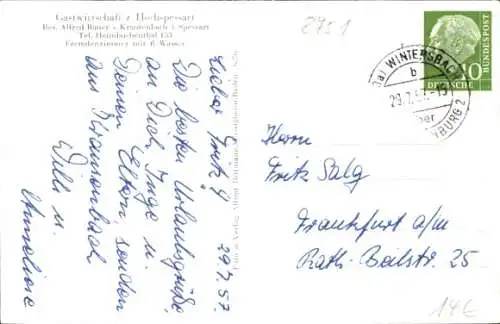 Gastwirtschaft z Hochspessart
Bes. Alfred Bauer · Krausenbach i Spessart
Tel. Heimbuchenthal 153
Fremdenzimmer mit fl. Wasser
2751
Lieber Fritz!
29.7.57
Die besten Urlaubsgrüße
an Dich, Inge u.
Deinen Eltern senden
aus Krausenbach
Willi u.
Anneliese
Foto u. Verlag Alfred
WINTERSBACH
b
29.7.57
über
BURG 2
10
DEUTSCHE
BUNDESPOST
Herrn
Fritz Salg
Frankfurt a/M
Rath-Beilstr. 25
14€